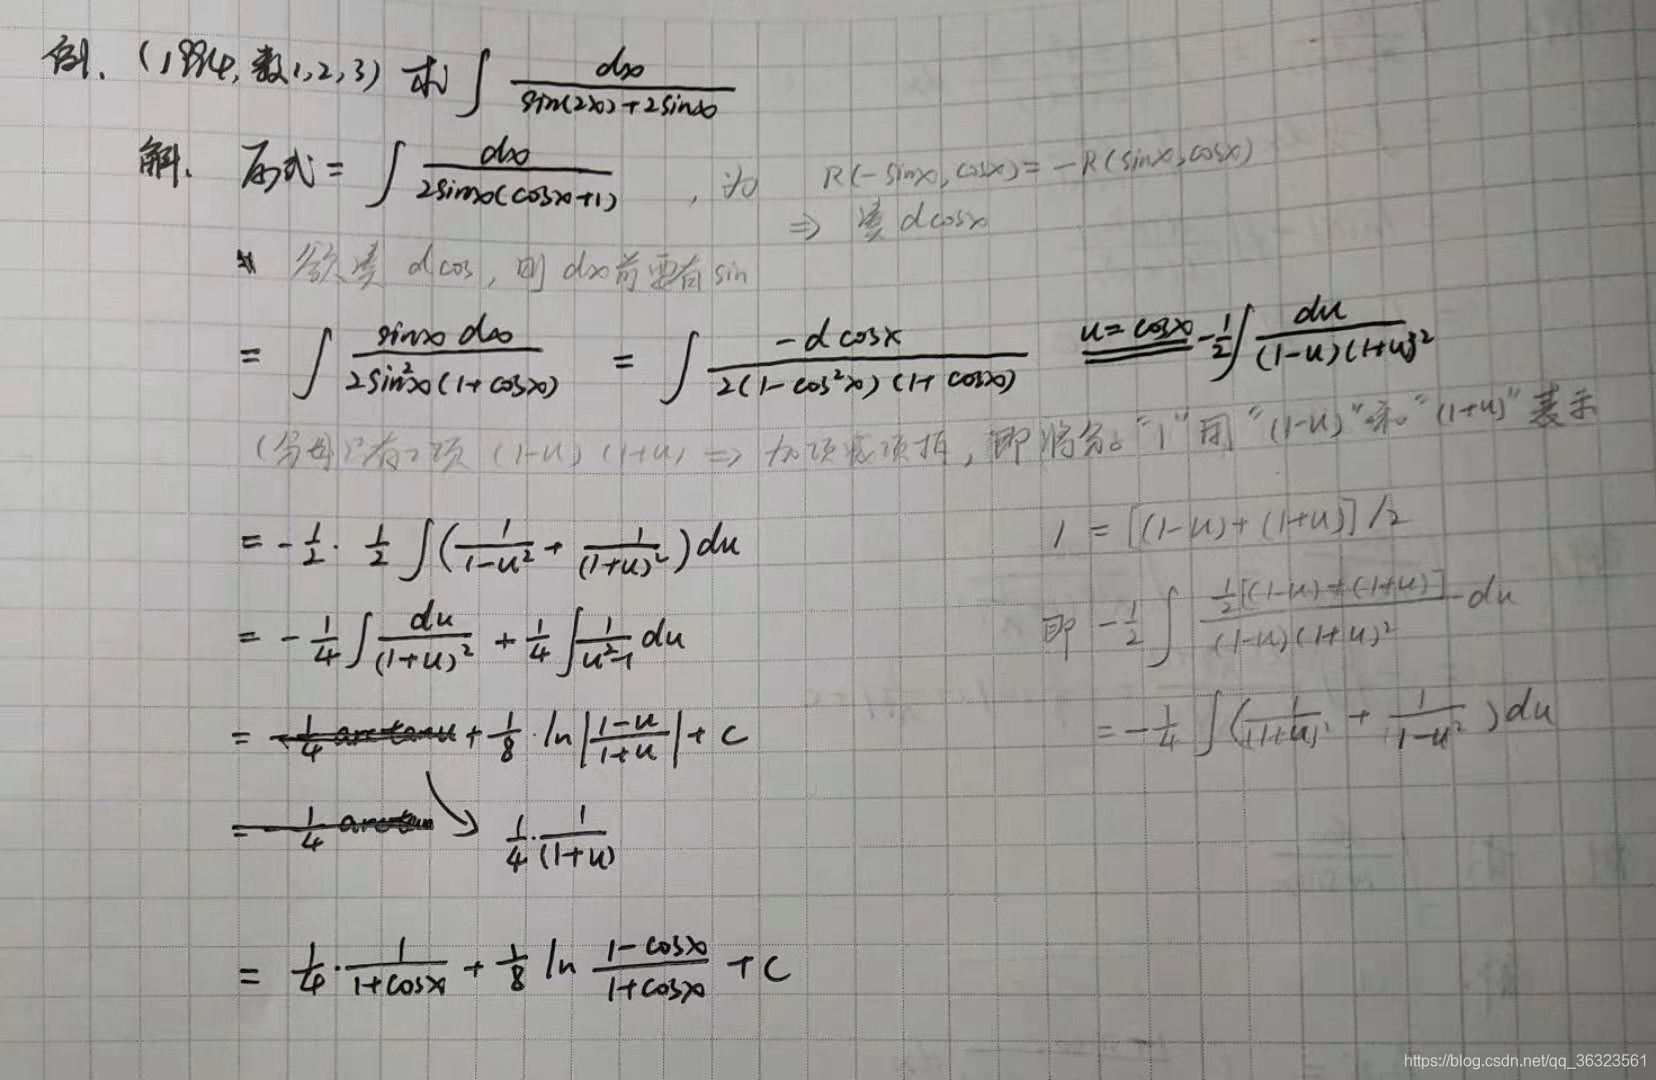 例. (1994, 数1,2,3) 求 ∫ dx / (sin(2x)+2sinx)
解. 原式 = ∫ dx / (2sinx(cosx+1)) , 为 R(-sinx, cosx) = -R(sinx, cosx)
⇒ 凑 dcosx
欲凑 dcos, 则 dx前要有 sin
= ∫ sinx dx / (2sin²x(1+cosx)) = ∫ -d cosx / (2(1-cos²x)(1+cosx)) u=cosx -1/2 ∫ du / ((1-u)(1+u)²)
(分母只有2项 (1-u) (1+u) ⇒ 加项减项拆, 即将分子"1"用"(1-u)"和"(1+u)"表示
= -1/2 · 1/2 ∫ (1/(1-u²) + 1/(1+u)²) du
1 = [(1-u)+(1+u)]/2
= -1/4 ∫ du/(1+u)² + 1/4 ∫ 1/(u²-1) du
即 -1/2 ∫ 1/2[(1-u)+(1+u)] / ((1-u)(1+u)²) du
= -1/4 arctanu + 1/8 · ln|(1-u)/(1+u)| + C
= -1/4 ∫ (1/(1+u)² + 1/(1-u²)) du
= -1/4 arctan
1/4 · 1/(1+u)
= 1/4 · 1/(1+cosx) + 1/8 ln (1-cosx)/(1+cosx) + C
https://blog.csdn.net/qq_36323561